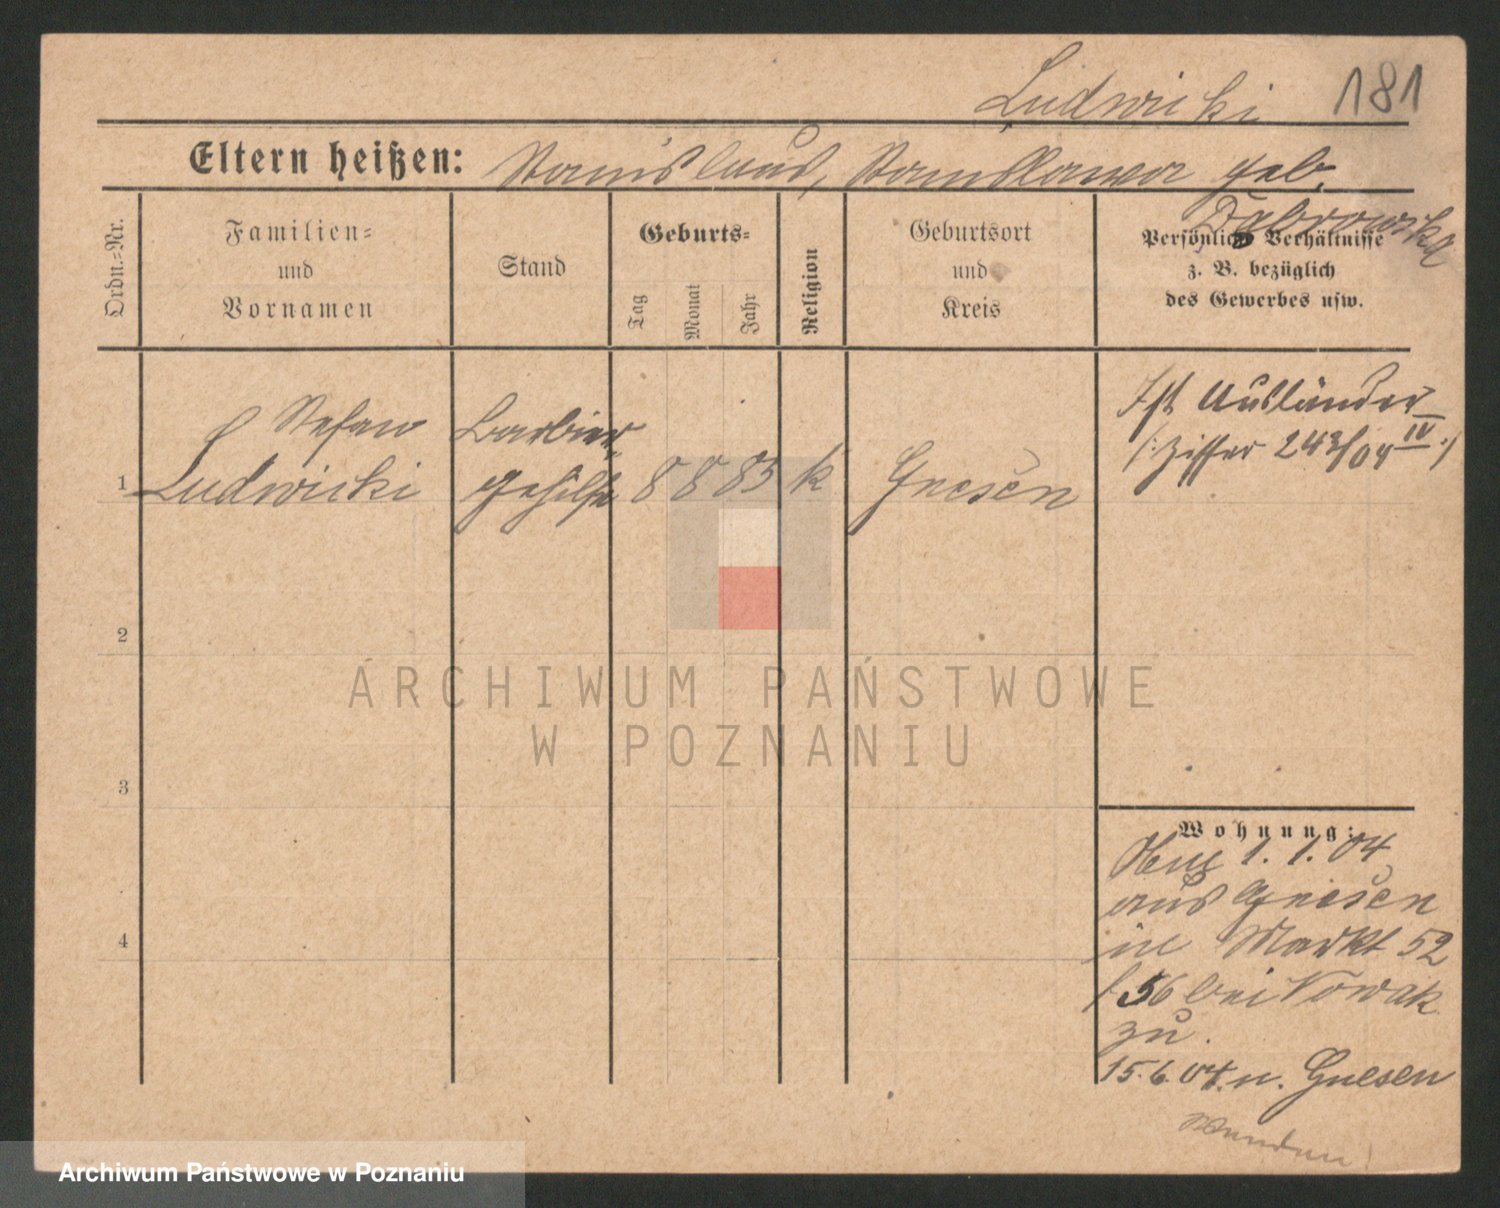 Ludwicki 181
Eltern heißen: Stanislaus, Stanislawa geb.
Dabrowska
Ordn.-Nr.
Familien-
und
Vornamen
Stand
Geburts-
Tag
Monat
Jahr
Religion
Geburtsort
und
Kreis
Persönliche Verhältnisse
z. B. bezüglich
des Gewerbes usw.
1
Stefan
Ludwicki
Barbier
gehilfe
8 8 83 k Gnesen
Ist Ausländer
(: Ziffer 243/04 IV :)
2
3
4
Wohnung:
1. 1. 04
aus Gnesen
in Markt 52
/ 56 bei Nowak
zu.
15.6.04. n. Gnesen
wenden!
ARCHIWUM PAŃSTWOWE
W POZNANIU
Archiwum Państwowe w Poznaniu